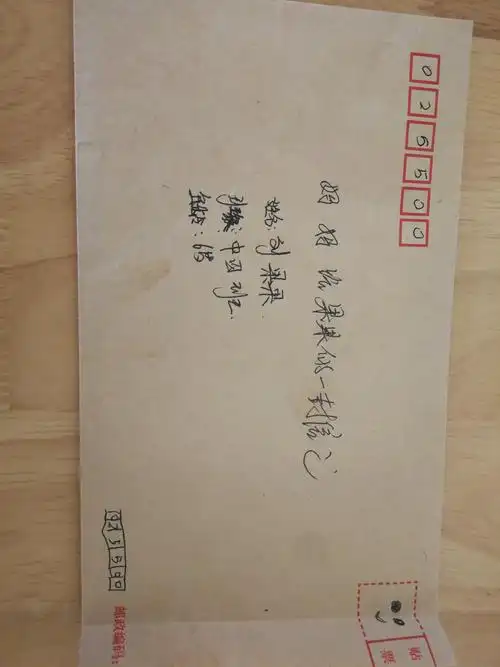 025500
妈妈给果果的一封信
姓名:刘果果.
班级:中四班.
年龄:6岁
贴
票
邮政编码: